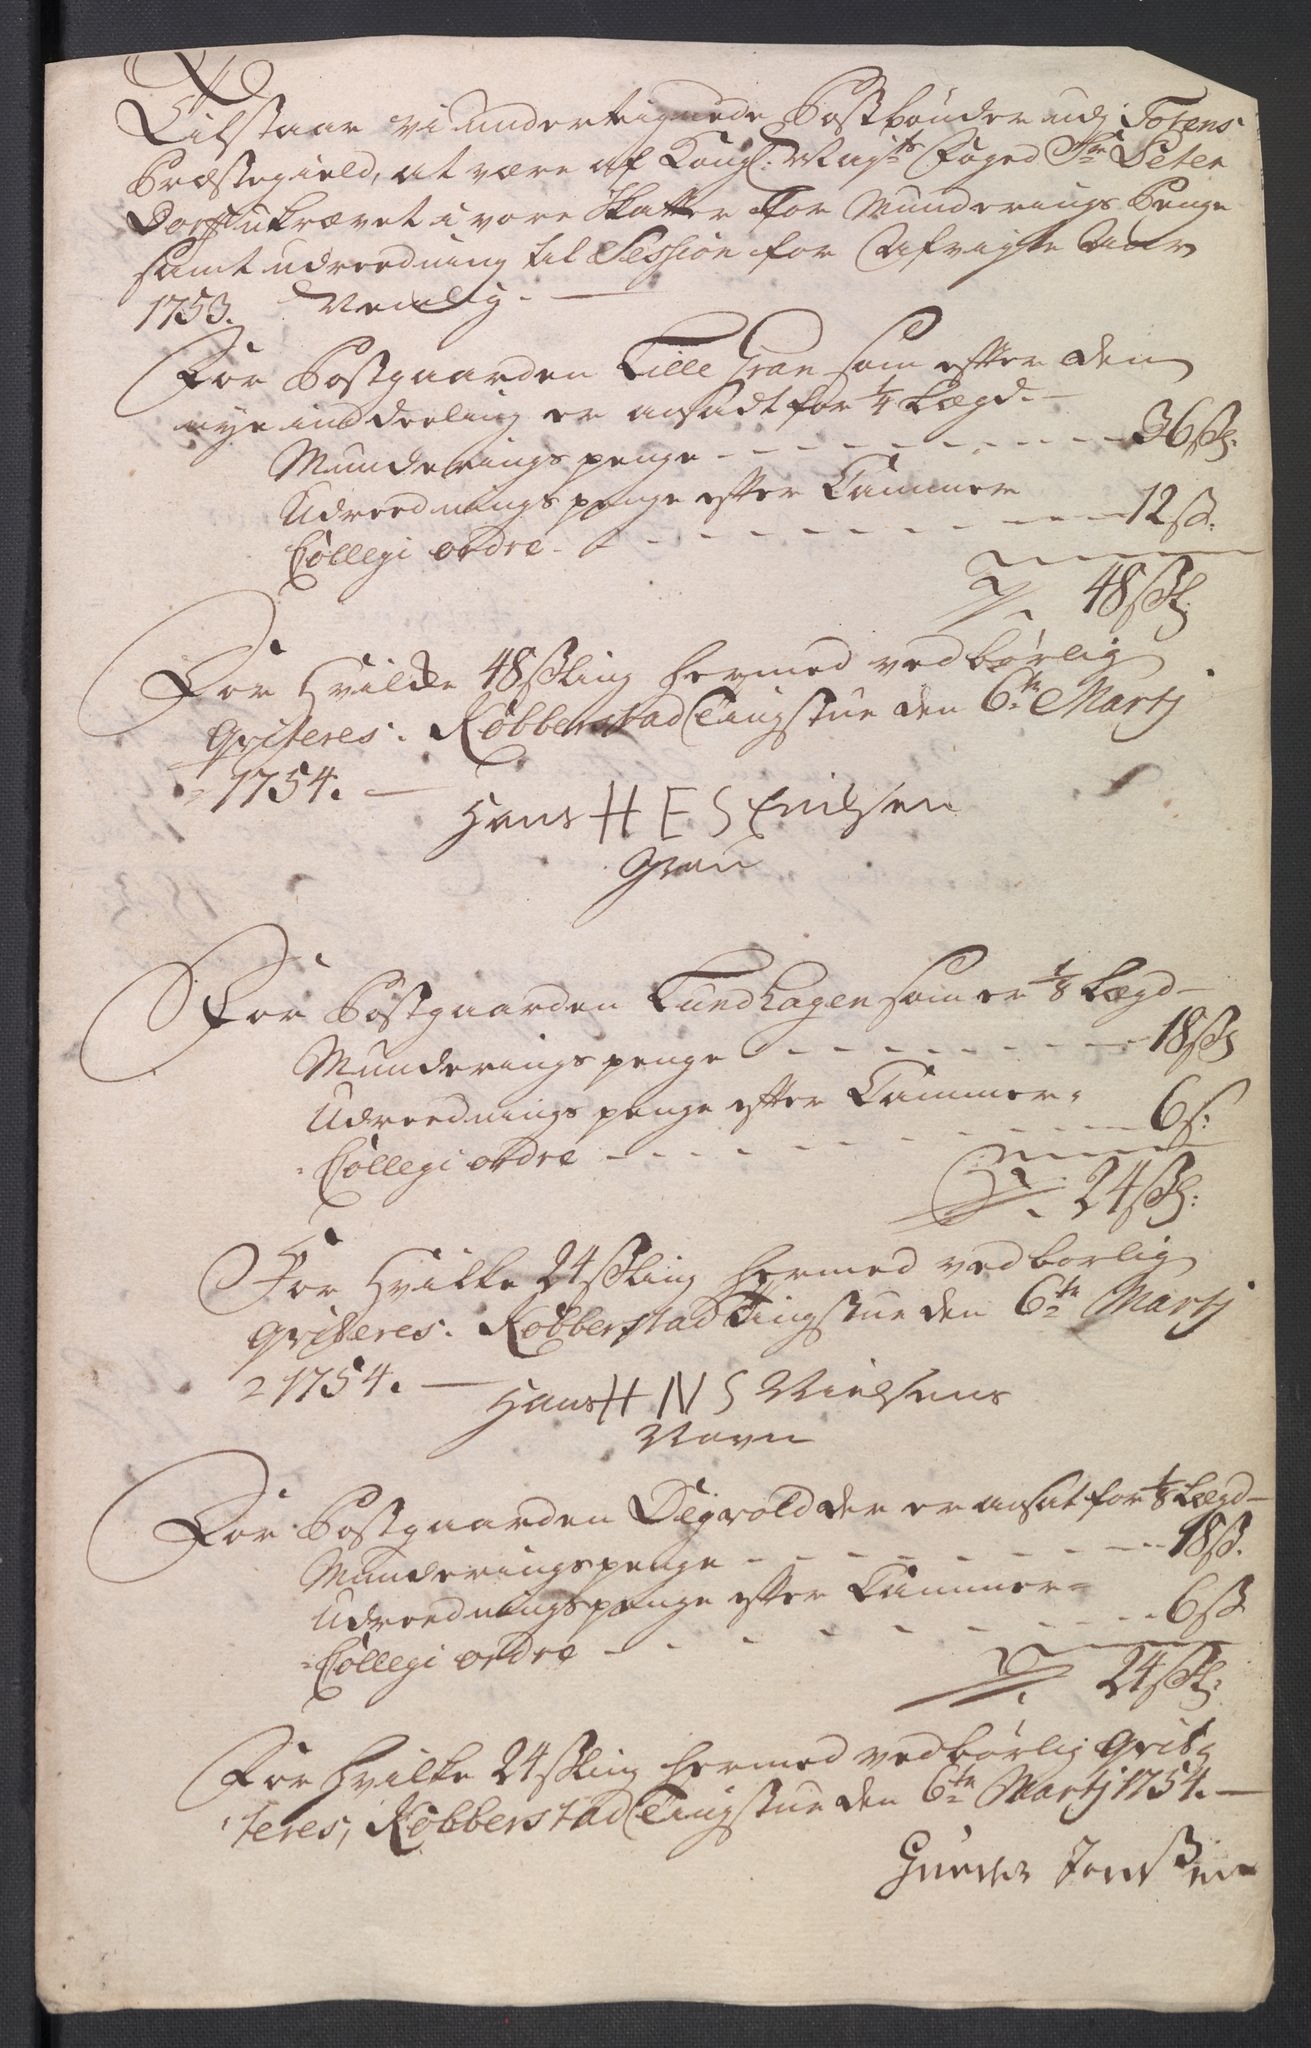 Tilstaar vi undertegnede Postbønder udj Totens
Præstegield, at være af Kongl: Mays:ts Foged Sr: Peter
Dorff ukrævet i vore Skatter for Munderings Penge
samt udreedning til Session for Afvigte Aar
1753. Nemlig. —
For Postgaarden Lille Gran som efter den
nye inddeeling er ansadt for 1/4 Lægd. —
Munderings penge - - - - - - - - - 36 ßl:
Udreednings penge efter Cammer
Collegi ordre. - - - - - - - - - 12 ß.
48 ßl.
For Hvilke 48 ßling hermed vedbørlig
qviteres. Røbberstad Tingstue den 6te Martj
1754. —
Hans H E S Enilsen
Gran
For Postgaarden Lundhagen som er 1/8 Lægd —
Munderings penge - - - - - - - - - 18 ßl
Udreednings penge efter Cammer=
=Collegi ordre - - - - - - - - - 6 ß:
24 ßl:
For Hvilke 24 ßling hermed vedborlig
qviteres. Røbberstad Tingstue den 6te Martj
1754. —
Hans H N S Nielsens
Navn
For Postgaarden Degvold der er ansat for 1/8 Lægd —
Munderingspenge - - - - - - - - - 18 ß.
Udreedningspenge efter Cammer=
=Collegi ordre - - - - - - - - - 6 ß
24 ßl:
For Hvilke 24 ßling hermed vedbørlig qvit=
teres, Røbberstad Tingstue den 6te Martj 1754. —
Gunder Jonßen